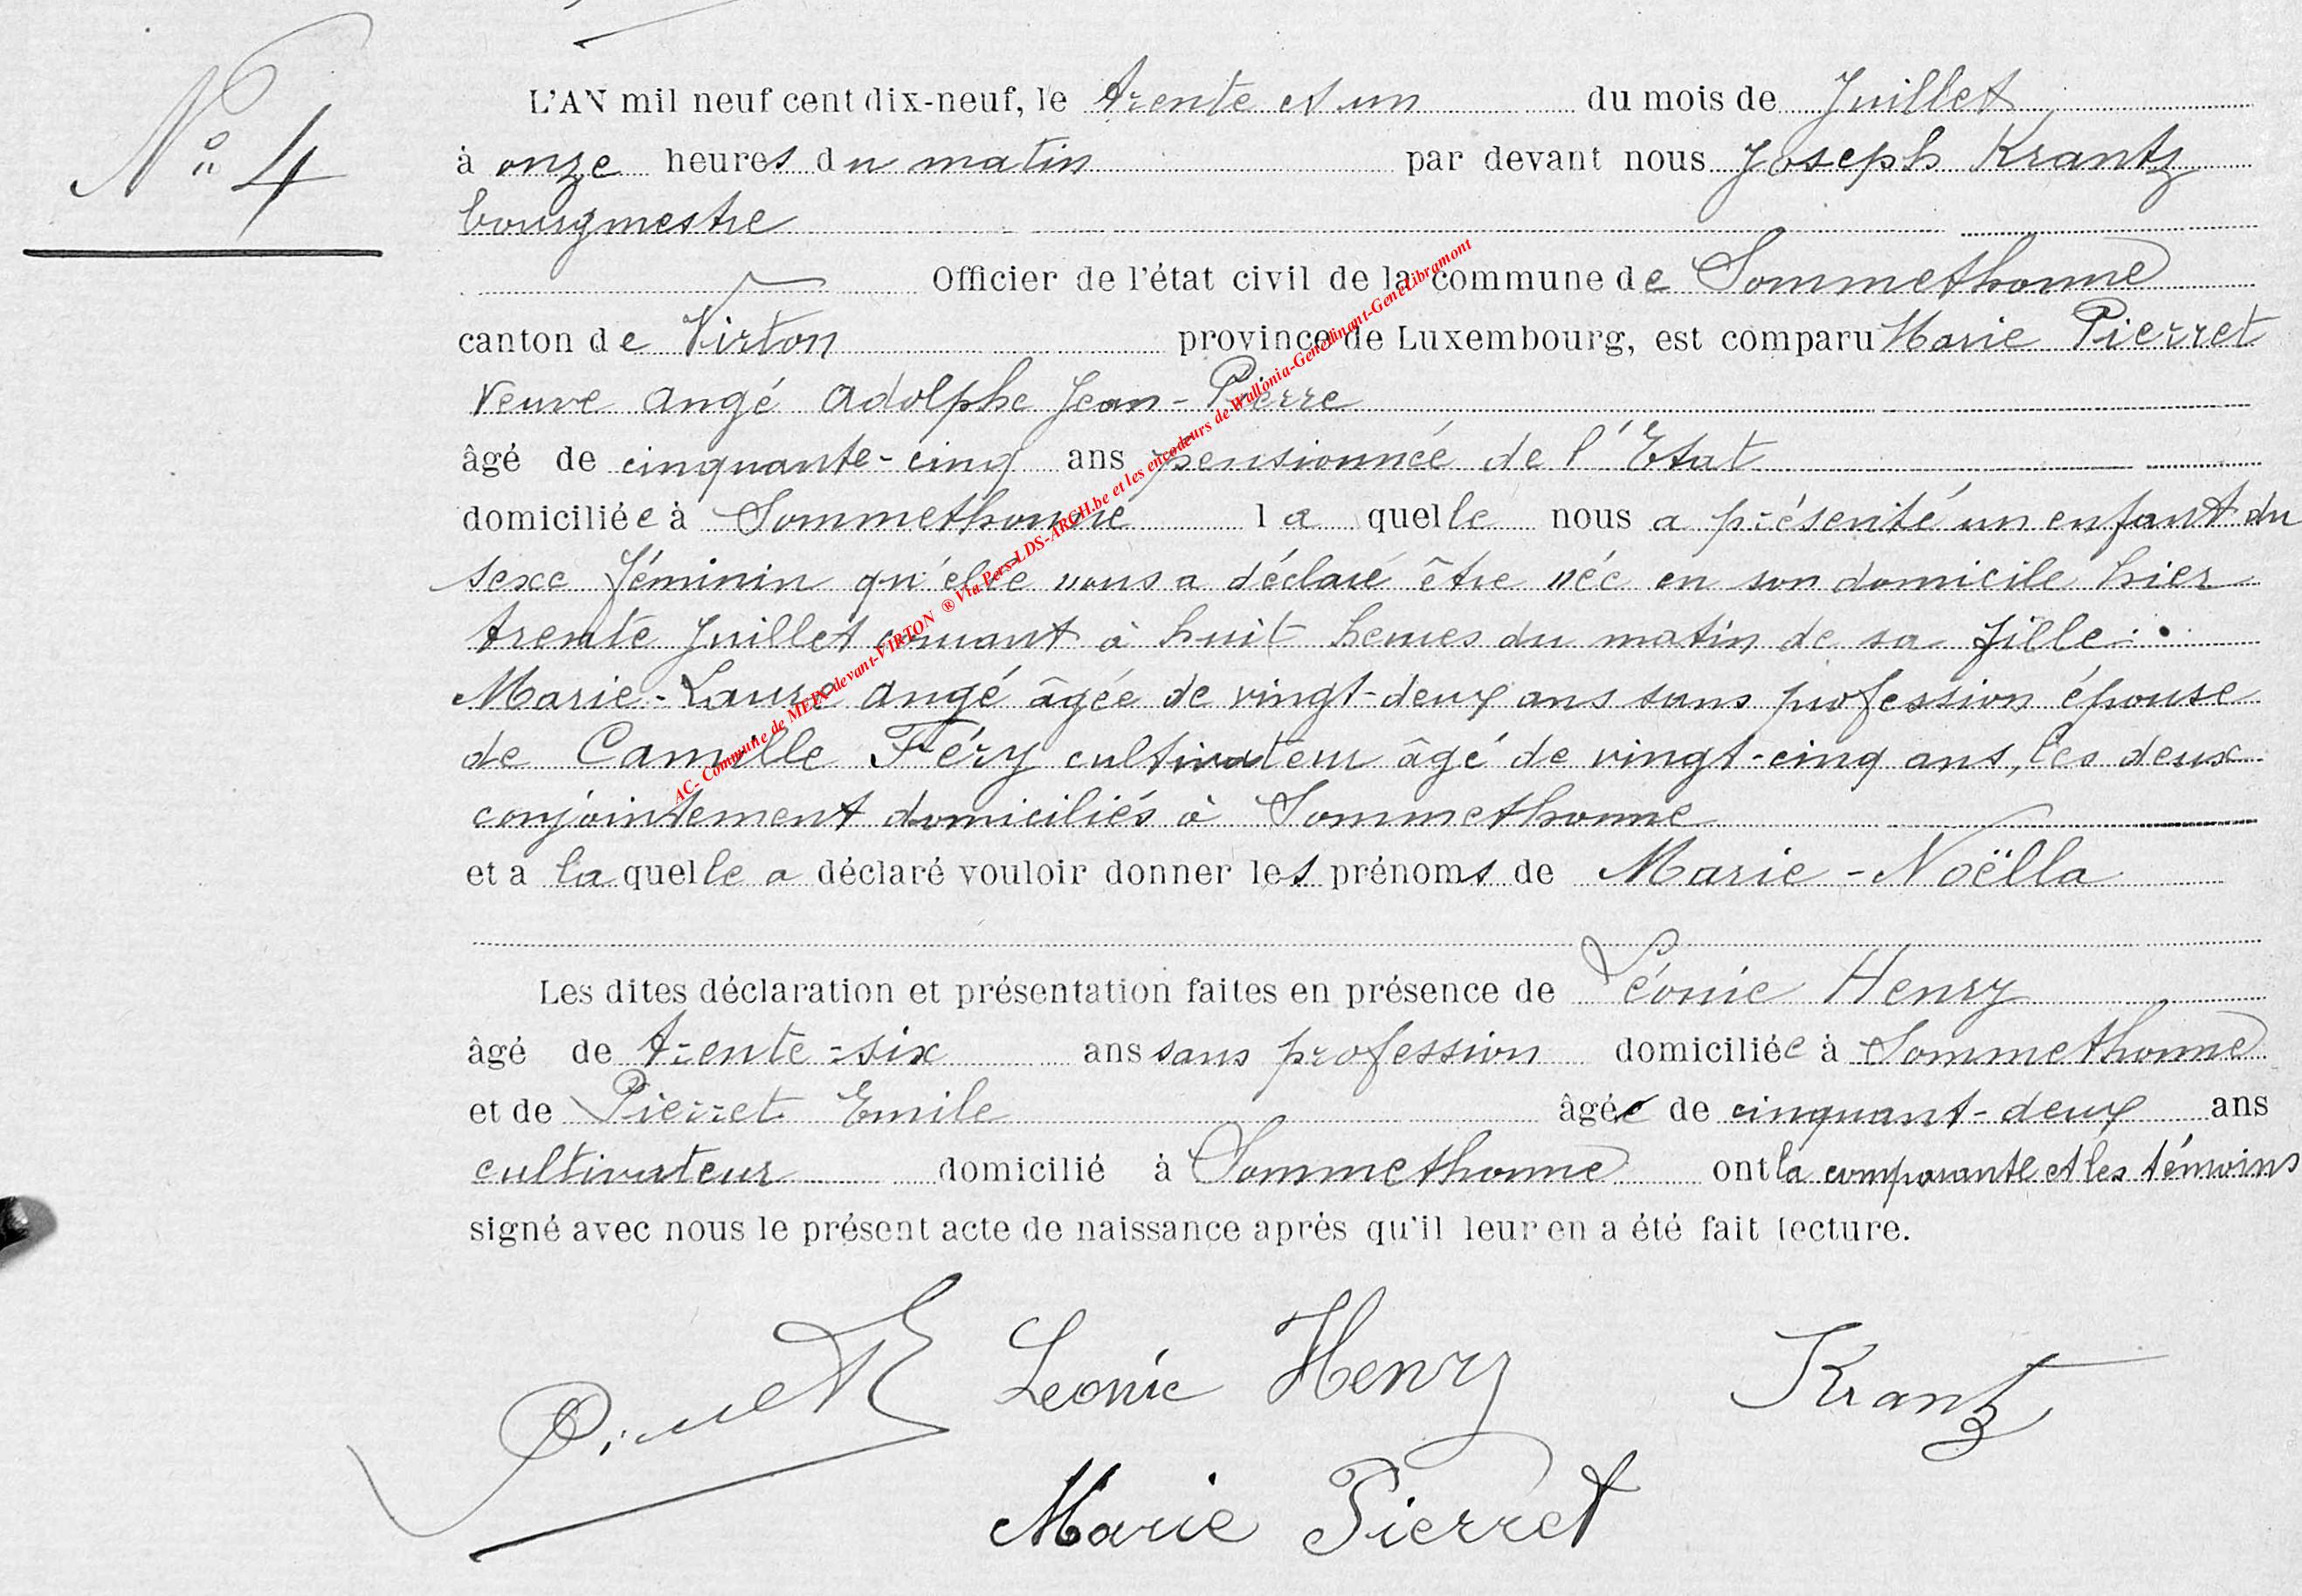 N° 4
L'AN mil neuf cent dix-neuf, le trente et un du mois de Juillet
à onze heures du matin par devant nous Joseph Krantz
bourgmestre
Officier de l'état civil de la commune de Sommethonne
canton de Virton province de Luxembourg, est comparu Marie Pierret
Veuve Angé Adolphe Jean-Pierre
âgé de cinquante-cinq ans pensionnée de l'Etat
domiciliée à Sommethonne laquelle nous a présenté un enfant du
sexe féminin qu'elle nous a déclaré être née en son domicile hier
trente Juillet courant à huit heures du matin de sa fille
Marie-Laure Angé âgée de vingt-deux ans sans profession épouse
de Camille Féry cultivateur âgé de vingt-cinq ans, les deux
conjointement domiciliés à Sommethonne
et a laquelle a déclaré vouloir donner les prénoms de Marie-Noëlla
Les dites déclaration et présentation faites en présence de Léonie Henry
âgé de trente-six ans sans profession domiciliée à Sommethonne
et de Pierret Emile âgé de cinquant-deux ans
cultivateur domicilié à Sommethonne ont la comparante et les témoins
signé avec nous le présent acte de naissance après qu'il leur en a été fait lecture.
Pierret E
Leonie Henry
Krantz
Marie Pierret
AC- Commune de MEIX-devant-VIRTON ® Via Pers-LDS-ARCH.be et les encodeurs de Wallonia-Genedinant-GeneLibramont